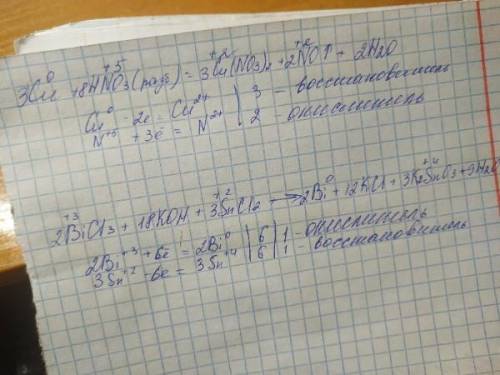 3Cu⁰ + 8HN⁺⁵O3 (разб) = 3Cu⁺²(NO3)2 + 2N⁺²O↑ + 2H2O
Cu⁰ - 2e = Cu²⁺ | 3 - восстановитель
N⁺⁵ + 3e = N²⁺ | 2 - окислитель
2Bi⁺³Cl3 + 18KOH + 3Sn⁺²Cl2 → 2Bi⁰ + 12KCl + 3K2Sn⁺⁴O3 + 9H2O
2Bi⁺³ + 6e = 2Bi⁰ | 6 | 1 - окислитель
3Sn⁺² - 6e = 3Sn⁺⁴ | 6 | 1 - восстановитель